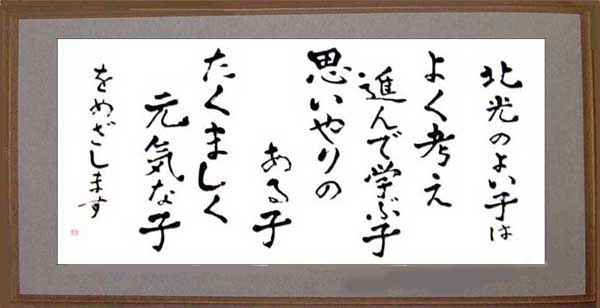 北光のよい子は
よく考え
進んで学ぶ子
思いやりの
ある子
たくましく
元気な子
をめざします